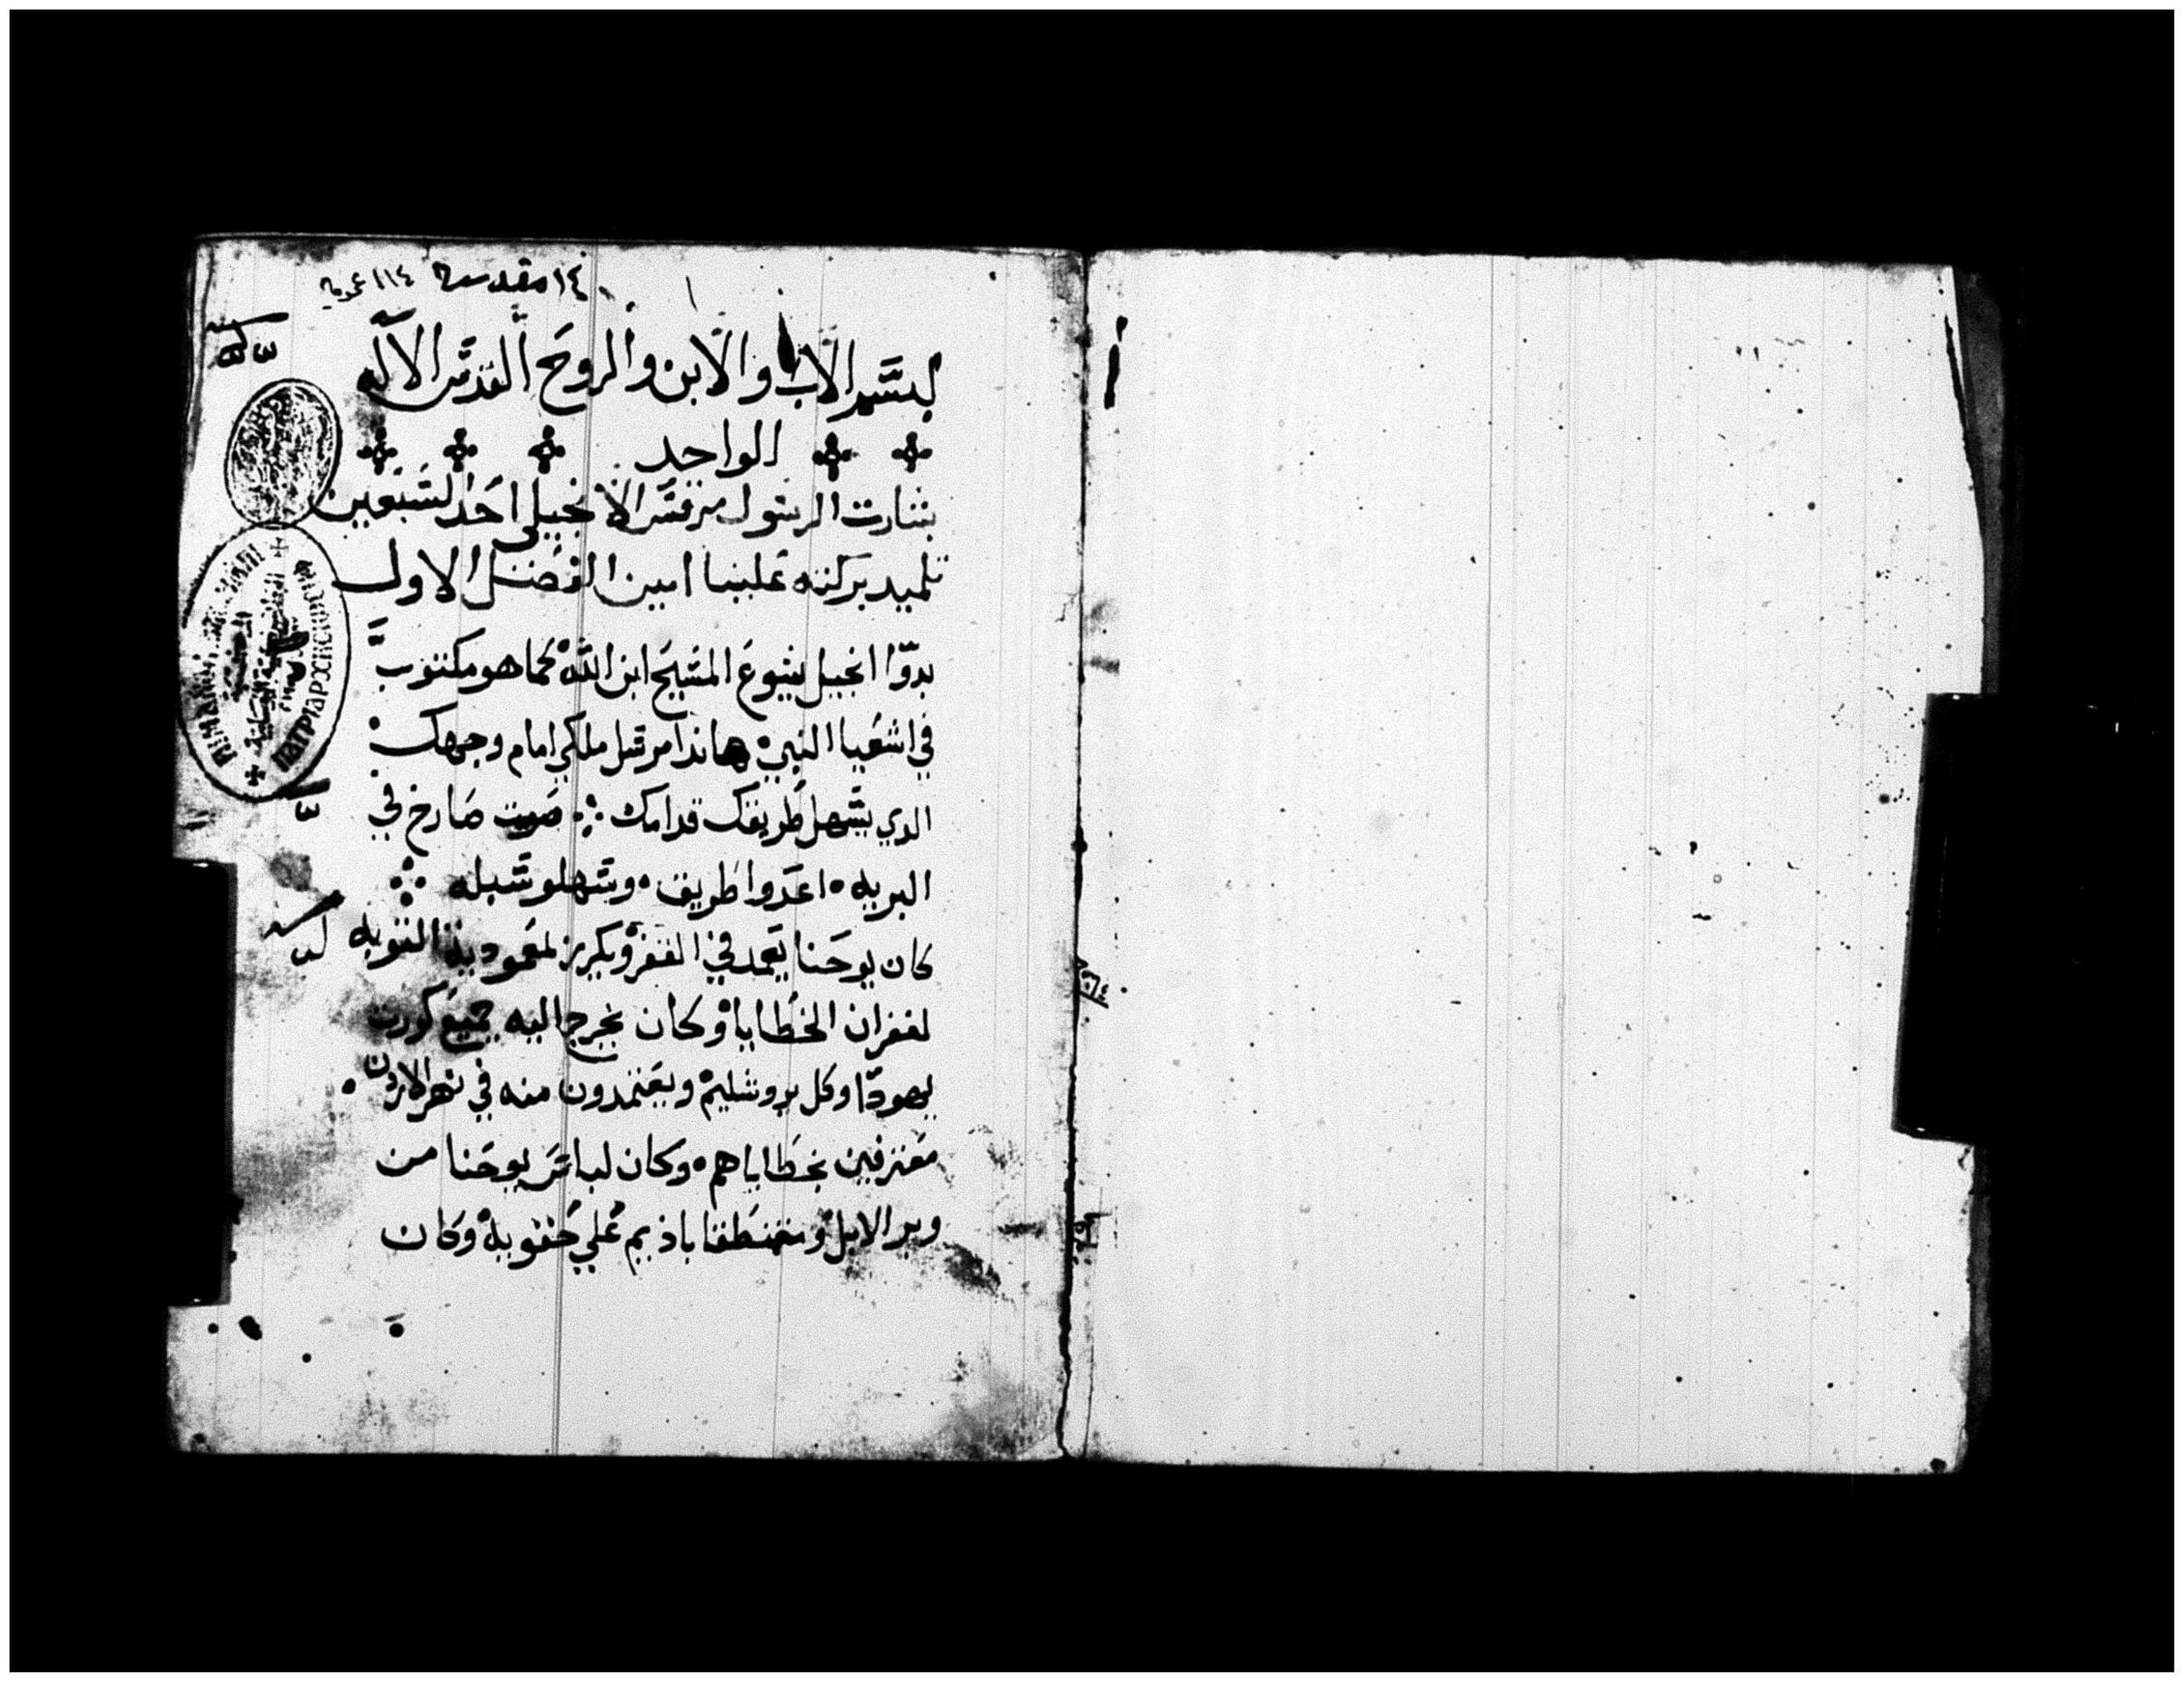 ١٤ مقدسه ١١٤ عمومية
بسم الاب والابن والروح القدس الاله
الواحد
بشارت الرسول مرقس الانجيلي احد السبعين
تلميد بركته علينا امين الفصل الاول
بدوّا انجيل يسوع المسيح ابن الله كما هو مكتوب
في اشعيا النبي هاندا مرسل ملكي امام وجهك
الدي يسهل طريقك قدامك صوت صارخ في
البريه اعدوا طريق وسهلو سبله
كان يوحنا يعمد في القفر ويكرز لمعمودية التوبه
لغفران الخطايا وكان يخرج اليه جميع كورت
يهودا وكل يروشليم ويعتمدون منه في نهر الاردن
معترفين بخطاياهم وكان لباس يوحنا من
وبر الابل ومتمنطقا باديم علي حقويه وكان